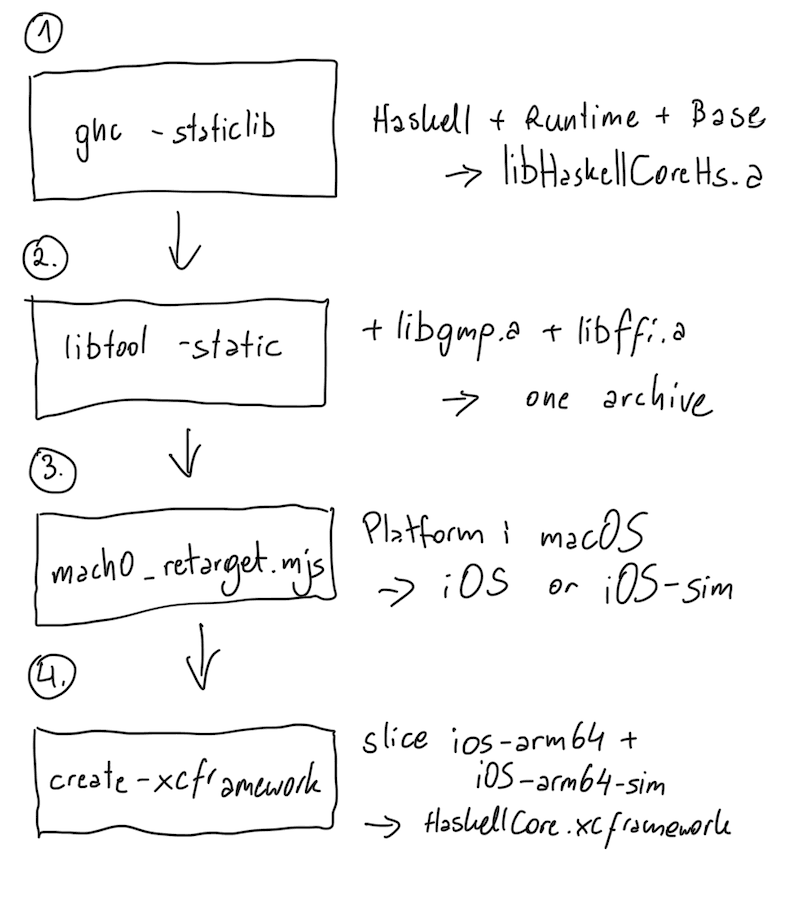 1
ghc -staticlib
Haskell + Runtime + Base
→ libHaskellCoreHs.a
2.
libtool -static
+ libgmp.a + libffi.a
→ one archive
3.
machO_retarget.mjs
Platform: macOS
→ iOS or iOS-sim
4.
create-xcframework
slice ios-arm64 +
iOS-arm64-sim
→ HaskellCore.xcframework